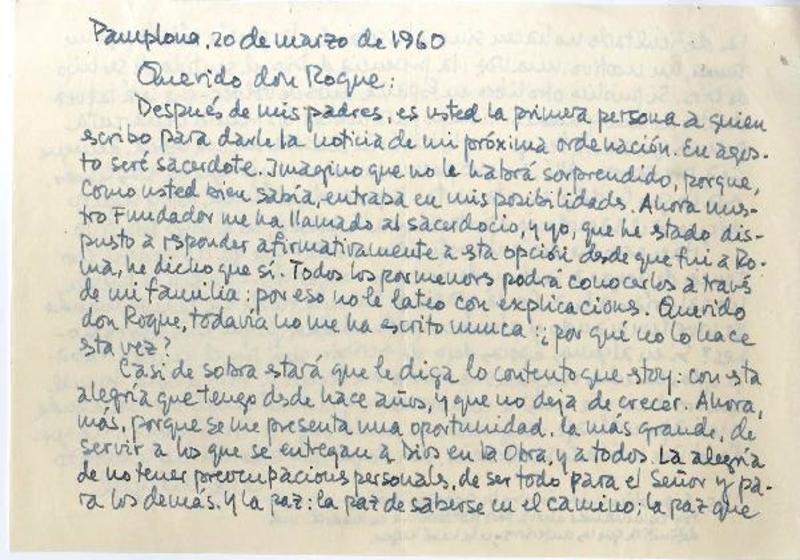 Pamplona, 20 de marzo de 1960
Querido don Roque:
Después de mis padres, es usted la primera persona a quien
escribo para darle la noticia de mi próxima ordenación. En agos-
to seré sacerdote. Imagino que no le habrá sorprendido, porque,
como usted bien sabía, entraba en mis posibilidades. Ahora nues-
tro Fundador me ha llamado al sacerdocio, y yo, que he estado dis-
puesto a responder afirmativamente a esta opción desde que fui a Ro-
ma, he dicho que sí. Todos los pormenores podrá conocerlos a través
de mi familia: por eso no le lateo con explicaciones. Querido
don Roque, todavía no me ha escrito nunca: ¿por qué no lo hace
esta vez?
Casi de sobra estará que le diga lo contento que estoy: con esta
alegría que tengo desde hace años, y que no deja de crecer. Ahora,
más, porque se me presenta una oportunidad, la más grande, de
servir a los que se entregan a Dios en la Obra, y a todos. La alegría
de no tener preocupaciones personales, de ser todo para el Señor y pa-
ra los demás. Y la paz: la paz de saberse en el camino; la paz que